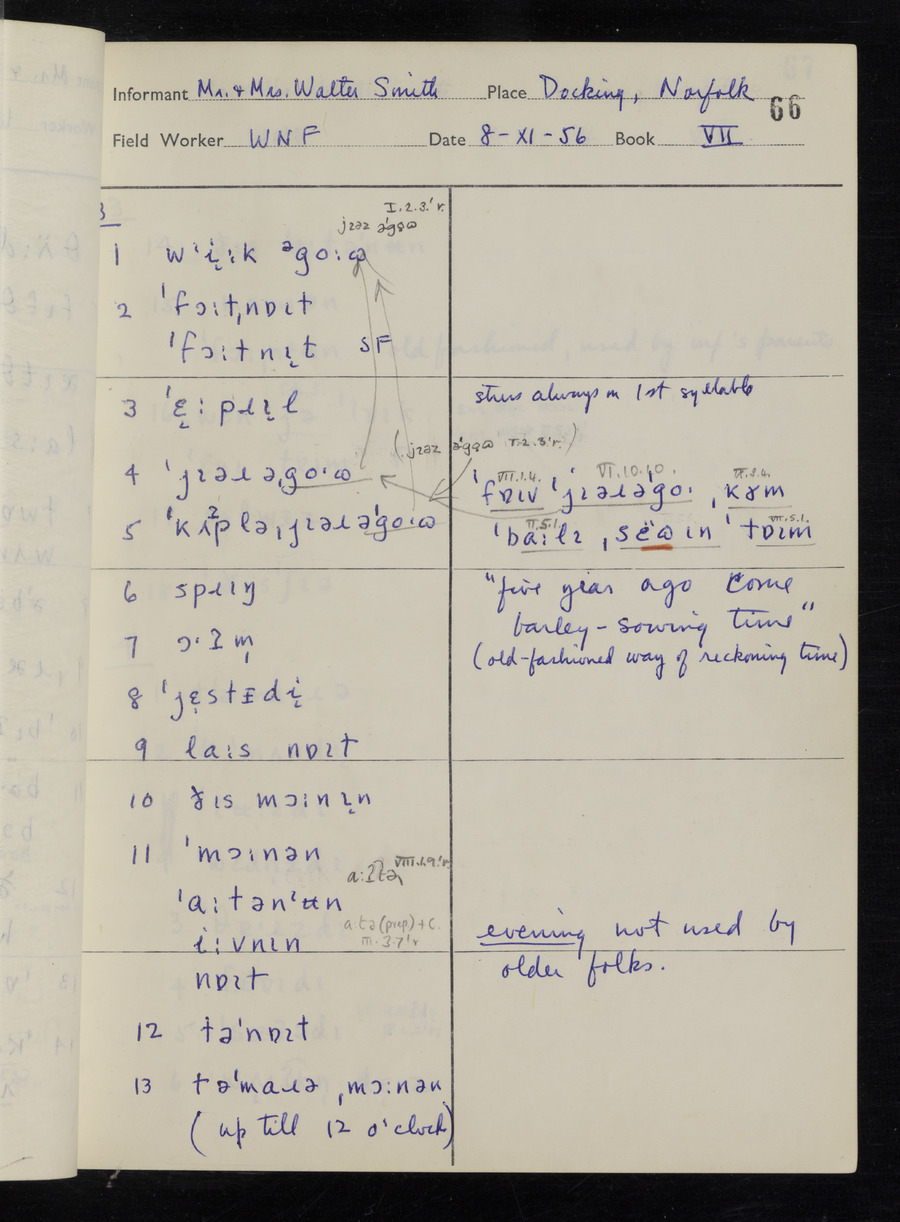 Informant Mr. & Mrs. Walter Smith Place Docking, Norfolk 66
Field Worker WNF Date 8-XI-56 Book VII
3
I.2.3.'r.
jɪəz əˈgɵɷ
1 wˈi̞ːk ᵊgoːɷ
2 ˈfɔːtˌnɒɪt
ˈfɔːtnɪ̞t SF
3 ˈɛ̞ːpɹɪ̞l
stress always on 1st syllable
4 ˈjɪəɹəˌgoˑɷ
(jɪəz əˈgɵɷ I.2.3.'r.)
VII.1.4. VI.10.10. IX.3.4.
ˈfɒɪv ˈjɪəɹəˈgoˑ, kɤm
5 ˈkʌplə, jɪəɹəˈgoːɷ
II.5.1. VII.5.1.
ˈbaːlɪ ˌsëɷɪn ˈtɒɪm
6 spɹɪŋ
"five year ago come
barley-sowing time"
(old-fashioned way of reckoning time)
7 ɔˑɪm̩
8 ˈjɛ̞stɪdi̞
9 laːs nɒɪt
10 ðɪs mɔːnɪ̞n
11 ˈmɔːnən
VIII.1.9.'r.
ˈaːtənˈʉn
a:tə (prep) + c.
III.3.7 'r
iːvnɪn
evening not used by
older folks.
nɒɪt
12 təˈnɒɪt
13 təˈmaɹə ˌmɔːnən
(up till 12 o'clock)